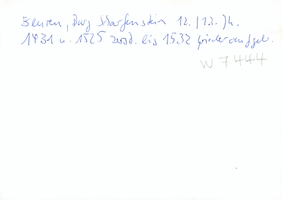 Beuren, Burg Scharfenstein 12./13. Jh.
1431 u. 1525 zerst. bis 1532 wieder aufgeb.
W 7444